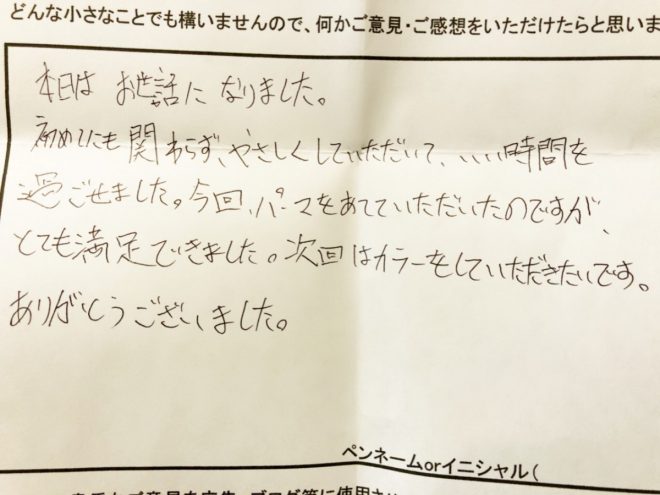 どんな小さなことでも構いませんので、何かご意見・ご感想をいただけたらと思いま
本日は お世話に なりました。
初めてにも関わらず、やさしくしていただいて、いい時間を
過ごせました。今回、パーマをあてていただいたのですが、
とても満足できました。次回はカラーをしていただきたいです。
ありがとうございました。
ペンネームorイニシャル(